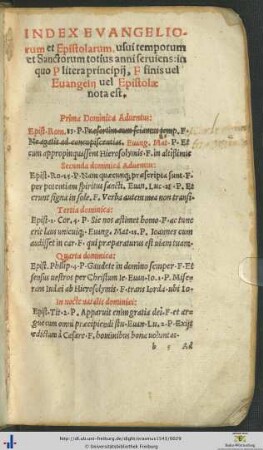 INDEX EVANGELIO-
rum et Epistolarum, usui temporum
et Sanctorum totius anni seruiens: in
quo P litera principij, F finis uel
Euangelij uel Epistolæ
nota est.
Prima Dominica Aduentus:
Epist. Rom. 13. P. Præsertim cum sciamus temp. F.
Ne agatis ad concupiscentias. Euang. Mat. P. Et
cum appropinquissent Hierosolymis. F. in altissimis
Secunda dominica Aduentus:
Epist. Ro. 15. P. Nam quæcunque præscripta sunt. F.
per potentiam spiritus sancti. Euan. Luc. 21. P. Et
erunt signa in sole. F. Verba autem mea non transi.
Tertia dominica:
Epist. 1. Cor. 4. P. Sic nos æstimet homo. F. ac tunc
eric laus unicuiq. Euang. Mat. 11. P. Ioannes cum
audisset in car. F. qui præparaturus est uiam tuam.
Quarta dominica:
Epist. Philip. 4. P. Gaudete in domino semper. F. Et
sensus uestros per Christum Ie. Euan. Io. 1. P. Miserunt
Iudei ab Hierosolymis. F. trans Iorda. ubi Io.
In nocte natalis dominici:
Epist. Tit. 2. P. Apparuit enim gratia dei. F. et arguerem
omni præcipiendi stu. Euan. Lu. 2. P. Exijt
edictum à Cesare. F. hominibus bone uoluntas.
b 5 Ad
http://dl.ub.uni-freiburg.de/diglit/erasmus1543/0029
© Universitätsbibliothek Freiburg